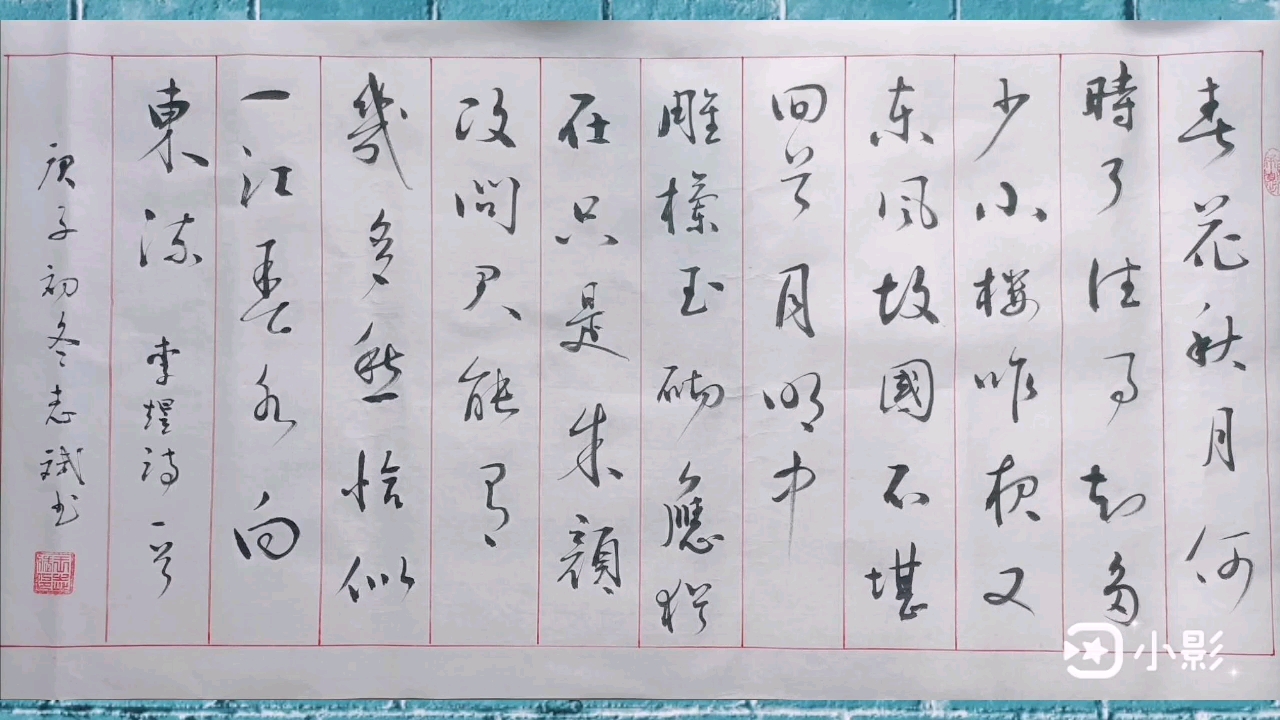 春花秋月何
時了往事知多
少小楼昨夜又
东风故國不堪
回首月明中
雕欄玉砌應猶
在只是朱顏
改問君能有
幾多愁恰似
一江春水向
東流 李煜詩一首
庚子初冬志斌书
小影